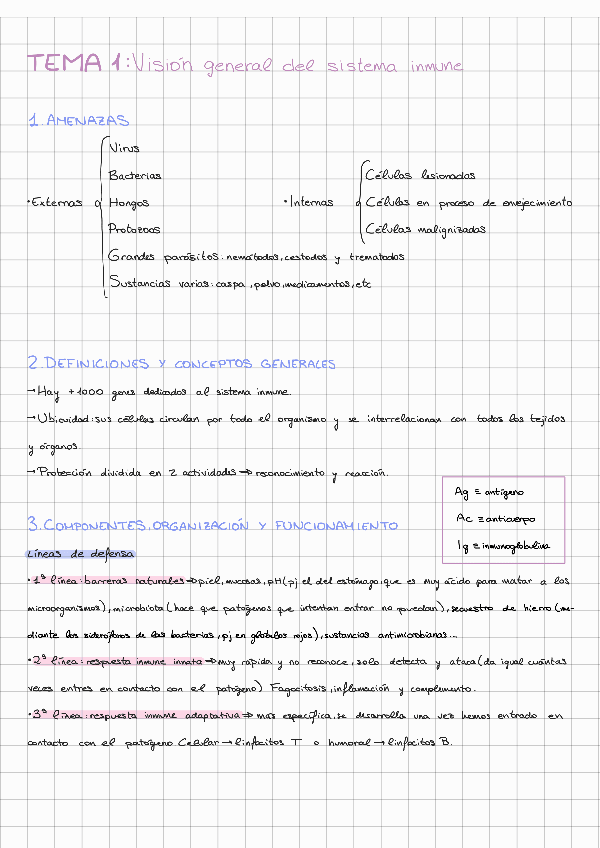 TEMA 1: Visión general del sistema inmune
1. AMENAZAS
Virus
Bacterias
·Externas
Hongos
Protozoos
Grandes parásitos: nemátodos, cestodos y trematodos
Sustancias varias: caspa, polvo, medicamentos, etc
·Internas
Células lesionadas
Células en proceso de envejecimiento
Células malignizadas
2. DEFINICIONES Y CONCEPTOS GENERALES
→Hay +1000 genes dedicados al sistema inmune.
→Ubicuidad: sus células circulan por todo el organismo y se interrelacionan con todos los tejidos
y órganos.
→Protección dividida en 2 actividades ⇒ reconocimiento y reacción.
Ag ≡ antígeno
Ac ≡ anticuerpo
Ig ≡ inmunoglobulina
3. COMPONENTES, ORGANIZACIÓN Y FUNCIONAMIENTO
Líneas de defensa
·1ª línea: barreras naturales ⇒ piel, mucosas, pH (pj el del estómago, que es muy ácido para matar a los
microorganismos), microbiota (hace que patógenos que intentan entrar no puedan), secuestro de hierro (me-
diante los sideróforos de las bacterias, pj en glóbulos rojos), sustancias antimicrobianas...
·2ª línea: respuesta inmune innata ⇒ muy rápida y no reconoce, solo detecta y ataca (da igual cuántas
veces entres en contacto con el patógeno) Fagocitosis, inflamación y complemento.
·3ª línea: respuesta inmune adaptativa ⇒ más específica, se desarrolla una vez hemos entrado en
contacto con el patógeno Celular → linfocitos T o humoral → linfocitos B.